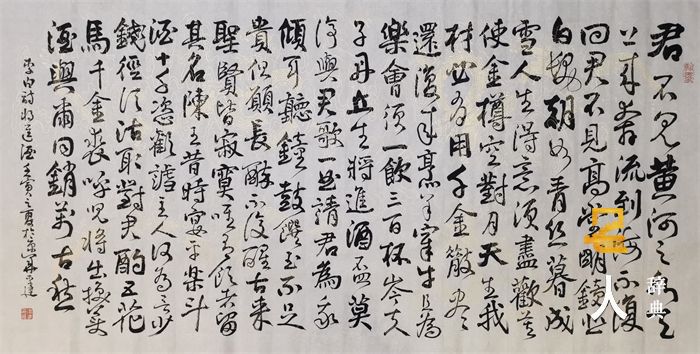 君不見黃河之水天
上來奔流到海不復
回君不見高堂明鏡悲
白髮朝如青絲暮成
雪人生得意須盡歡莫
使金樽空對月天生我
材必有用千金散盡
還復來烹羊宰牛且為
樂會須一飲三百杯岑夫
子丹丘生將進酒杯莫
停與君歌一曲請君為我
傾耳聽鐘鼓饌玉不足
貴但願長醉不復醒古來
聖賢皆寂寞唯有飲者留
其名陳王昔時宴平樂斗
酒十千恣歡謔主人何為言少
錢徑須沽取對君酌五花
馬千金裘呼兒將出換美
酒與爾同銷萬古愁
李白詩將進酒壬寅之夏於京
人
辞典